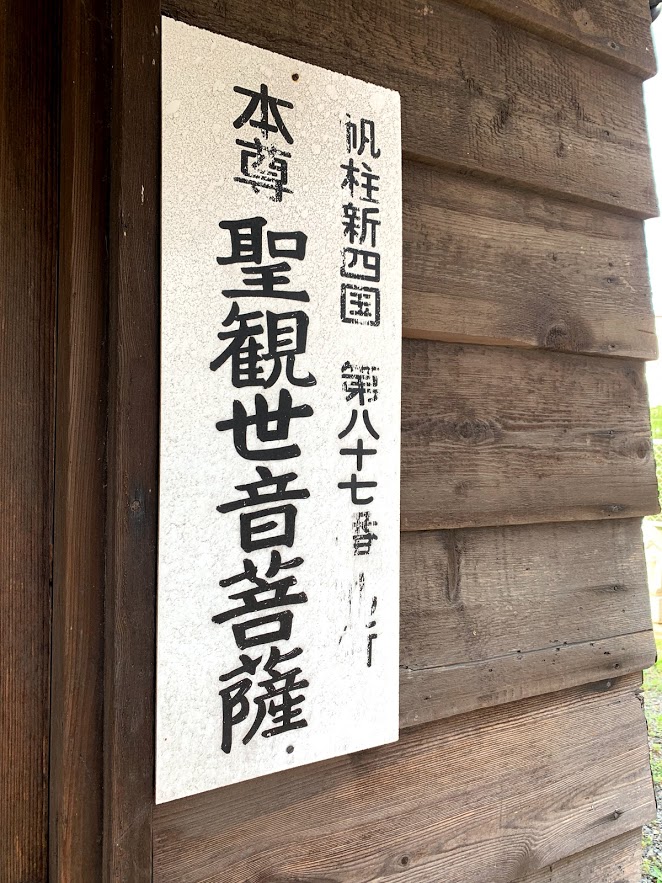 帆柱新四国 第八十七番 所
本尊 聖観世音菩薩